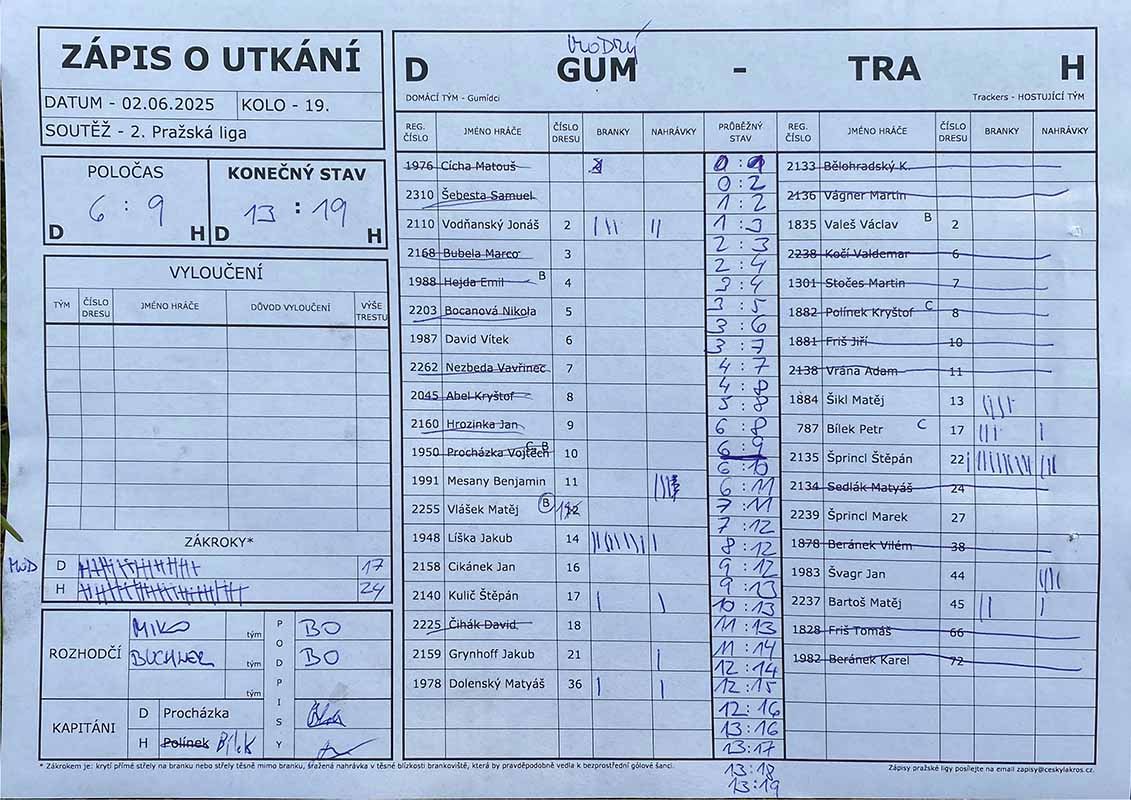 ZÁPIS O UTKÁNÍ
DATUM - 02.06.2025 KOLO - 19.
SOUTĚŽ - 2. Pražská liga
POLOČAS KONEČNÝ STAV
6 : 9 13 : 19
D H D H
VYLOUČENÍ
TÝM ČÍSLO DRESU JMÉNO HRÁČE DŮVOD VYLOUČENÍ VÝŠE TRESTU
ZÁKROKY*
D 17
H 24
ROZHODČÍ
MIKO tým BO
BUCHNER tým BO
tým
PODPISY
KAPITÁNI
D Procházka
H Polínek Bílek
MODRÝ
D GUM - TRA H
DOMÁCÍ TÝM - Gumídci Trackers - HOSTUJÍCÍ TÝM
REG. ČÍSLO JMÉNO HRÁČE ČÍSLO DRESU BRANKY NAHRÁVKY PRŮBĚŽNÝ STAV REG. ČÍSLO JMÉNO HRÁČE ČÍSLO DRESU BRANKY NAHRÁVKY
1976 Cícha Matouš
2310 Šebesta Samuel
2110 Vodňanský Jonáš 2
2168 Bubela Marco 3
1988 Hejda Emil B 4
2203 Bocanová Nikola 5
1987 David Vítek 6
2262 Nezbeda Vavřinec 7
2045 Abel Kryštof 8
2160 Hrozinka Jan 9
1950 Procházka Vojtěch C B 10
1991 Mesany Benjamin 11
2255 Vlášek Matěj B
1948 Líška Jakub 14
2158 Cikánek Jan 16
2140 Kulič Štěpán 17
2225 Čihák David 18
2159 Grynhoff Jakub 21
1978 Dolenský Matyáš 36
0 : 2
1 : 2
1 : 3
2 : 3
2 : 4
3 : 4
3 : 5
3 : 6
3 : 7
4 : 7
4 : 8
5 : 8
6 : 8
6 : 9
6 : 10
6 : 11
7 : 11
7 : 12
8 : 12
9 : 12
9 : 13
10 : 13
11 : 13
11 : 14
12 : 14
12 : 15
12 : 16
13 : 16
13 : 17
13 : 18
13 : 19
2133 Bělohradský K.
2136 Vágner Martin
1835 Valeš Václav B 2
2238 Kočí Valdemar 6
1301 Stočes Martin 7
1882 Polínek Kryštof C 8
1881 Friš Jiří 10
2138 Vrána Adam 11
1884 Šikl Matěj 13
787 Bílek Petr C 17
2135 Šprincl Štěpán 22
2134 Sedlák Matyáš 24
2239 Šprincl Marek 27
1878 Beránek Vilém 38
1983 Švagr Jan 44
2237 Bartoš Matěj 45
1828 Friš Tomáš 66
1982 Beránek Karel 72
* Zákrokem je: krytí přímé střely na branku nebo střely těsně mimo branku, sražená nahrávka v těsné blízkosti brankoviště, která by pravděpodobně vedla k bezprostřední gólové šanci.
Zápisy pražské ligy posílejte na email zapisy@ceskylakros.cz.